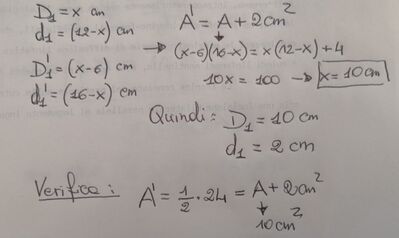 D₁ = x cm
d₁ = (12-x) cm
D₁' = (x-6) cm
d₁' = (16-x) cm
A' = A + 2cm²
→ (x-6)(16-x) = x(12-x) + 4
10x = 100 → x = 10 cm
Quindi: D₁ = 10 cm
d₁ = 2 cm
Verifica: A' = 1/2 · 24 = A + 2cm²
↓
10 cm²